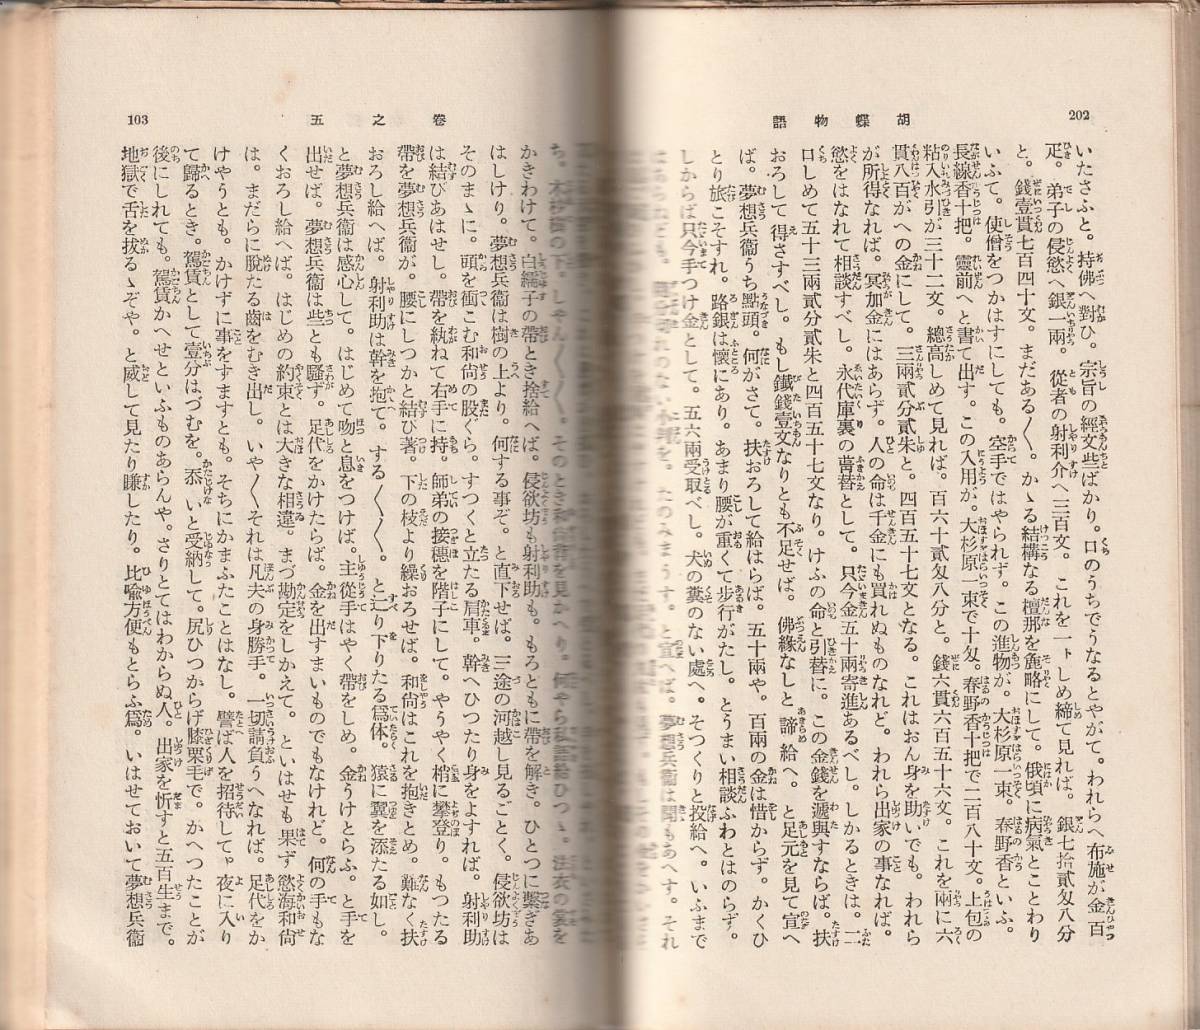 202
胡蝶物語
いたさふと。持佛へ對ひ。宗旨の經文些ばかり。口のうちでうなるとやがて。われらへ布施が金百
疋。弟子の侵慾へ銀一兩。從者の射利介へ三百文。これを一トしめ締て見れば。銀七拾貳匁八分
と。錢壹貫七百四十文。まだある〱。かゝる結構なる檀那を麁略にして。俄頃に病氣とことわり
いふて。使僧をつかはすにしても。空手ではやられず。この進物が。大杉原一束。春野香といふ。
長線香十把。靈前へと書て出す。この入用が。大杉原一束で十匁。春野香十把で二百八十文。上包の
粘入水引が三十二文。總高しめて見れば。百六十貳匁八分と。錢六貫六百五十六文。これを兩に六
貫八百がへの金にして。三兩貳分貳朱と。四百五十七文となる。これはおん身を助いでも。われら
が所得なれば。冥加金にはあらず。人の命は千金にも買れぬものなれど。われら出家の事なれば。
慾をはなれて相談すべし。永代庫裏の葺替として。只今金五十兩寄進あるべし。しかるときは。二
口しめて五十三兩貳分貳朱と四百五十七文なり。けふの命と引替に。この金錢を遞與すならば。扶
おろして得さすべし。もし鐵錢壹文なりとも不足せば。佛緣なしと諦給へ。と足元を見て宣へ
ば。夢想兵衞うち點頭。何がさて。扶おろして給はらば。五十兩や。百兩の金は惜からず。かくひ
とり旅こそすれ。路銀は懷にあり。あまり腰が重くて步行がたし。とうまい相談ふわとはのらず。
しからば只今手つけ金として。五六兩受取べし。犬の糞のない處へ。そつくりと投給へ。いふまで
103
卷之五
かきわけて。白繻子の帶とき捨給へば。侵欲坊も射利助も。もろともに帶を解き。ひとつに繫ぎあ
はしけり。夢想兵衞は樹の上より。何する事ぞ。と直下せば。三途の河越し見るごとく。侵欲坊は
そのまゝに。頭を衝こむ和尚の股ぐら。すつくと立たる肩車。幹へひつたり身をよすれば。射利助
は結びあはせし。帶を紈ねて右手に持。師弟の接穗を階子にして。やうやく梢に攀登り。もつたる
帶を夢想兵衞が。腰にしつかと結び著。下の枝より繰おろせば。和尚はこれを抱きとめ。難なく扶
おろし給へば。射利助は幹を抱て。する〱〱。と辷り下りたる爲体。猿に翼を添たる如し。
と夢想兵衞は感心して。はじめて吻と息をつけば。主從手はやく帶をしめ。金うけとらふ。と手を
出せば。夢想兵衞は些とも騷ず。足代をかけたらば。金を出すまいものでもなけれど。何の手もな
くおろし給へば。はじめの約束とは大きな相違。まづ勘定をしかえて。といはせも果ず慾海和尚
は。まだらに脫たる齒をむき出し。いや〱それは凡夫の身勝手。一切請負うへなれば。足代をか
けやうとも。かけずに事をすますとも。そちにかまふたことはなし。譬ば人を招待してヤ夜に入り
て歸るとき。駕賃として壹分はづむを。忝いと受納して。尻ひつからげ膝栗毛で。かへつたことが
後にしれても。駕賃かへせといふものあらんや。さりとてはわからぬ人。出家を忻すと五百生まで。
地獄で舌を拔るゝぞや。と威して見たり賺したり。比喩方便もとらふ爲。いはせておいて夢想兵衞